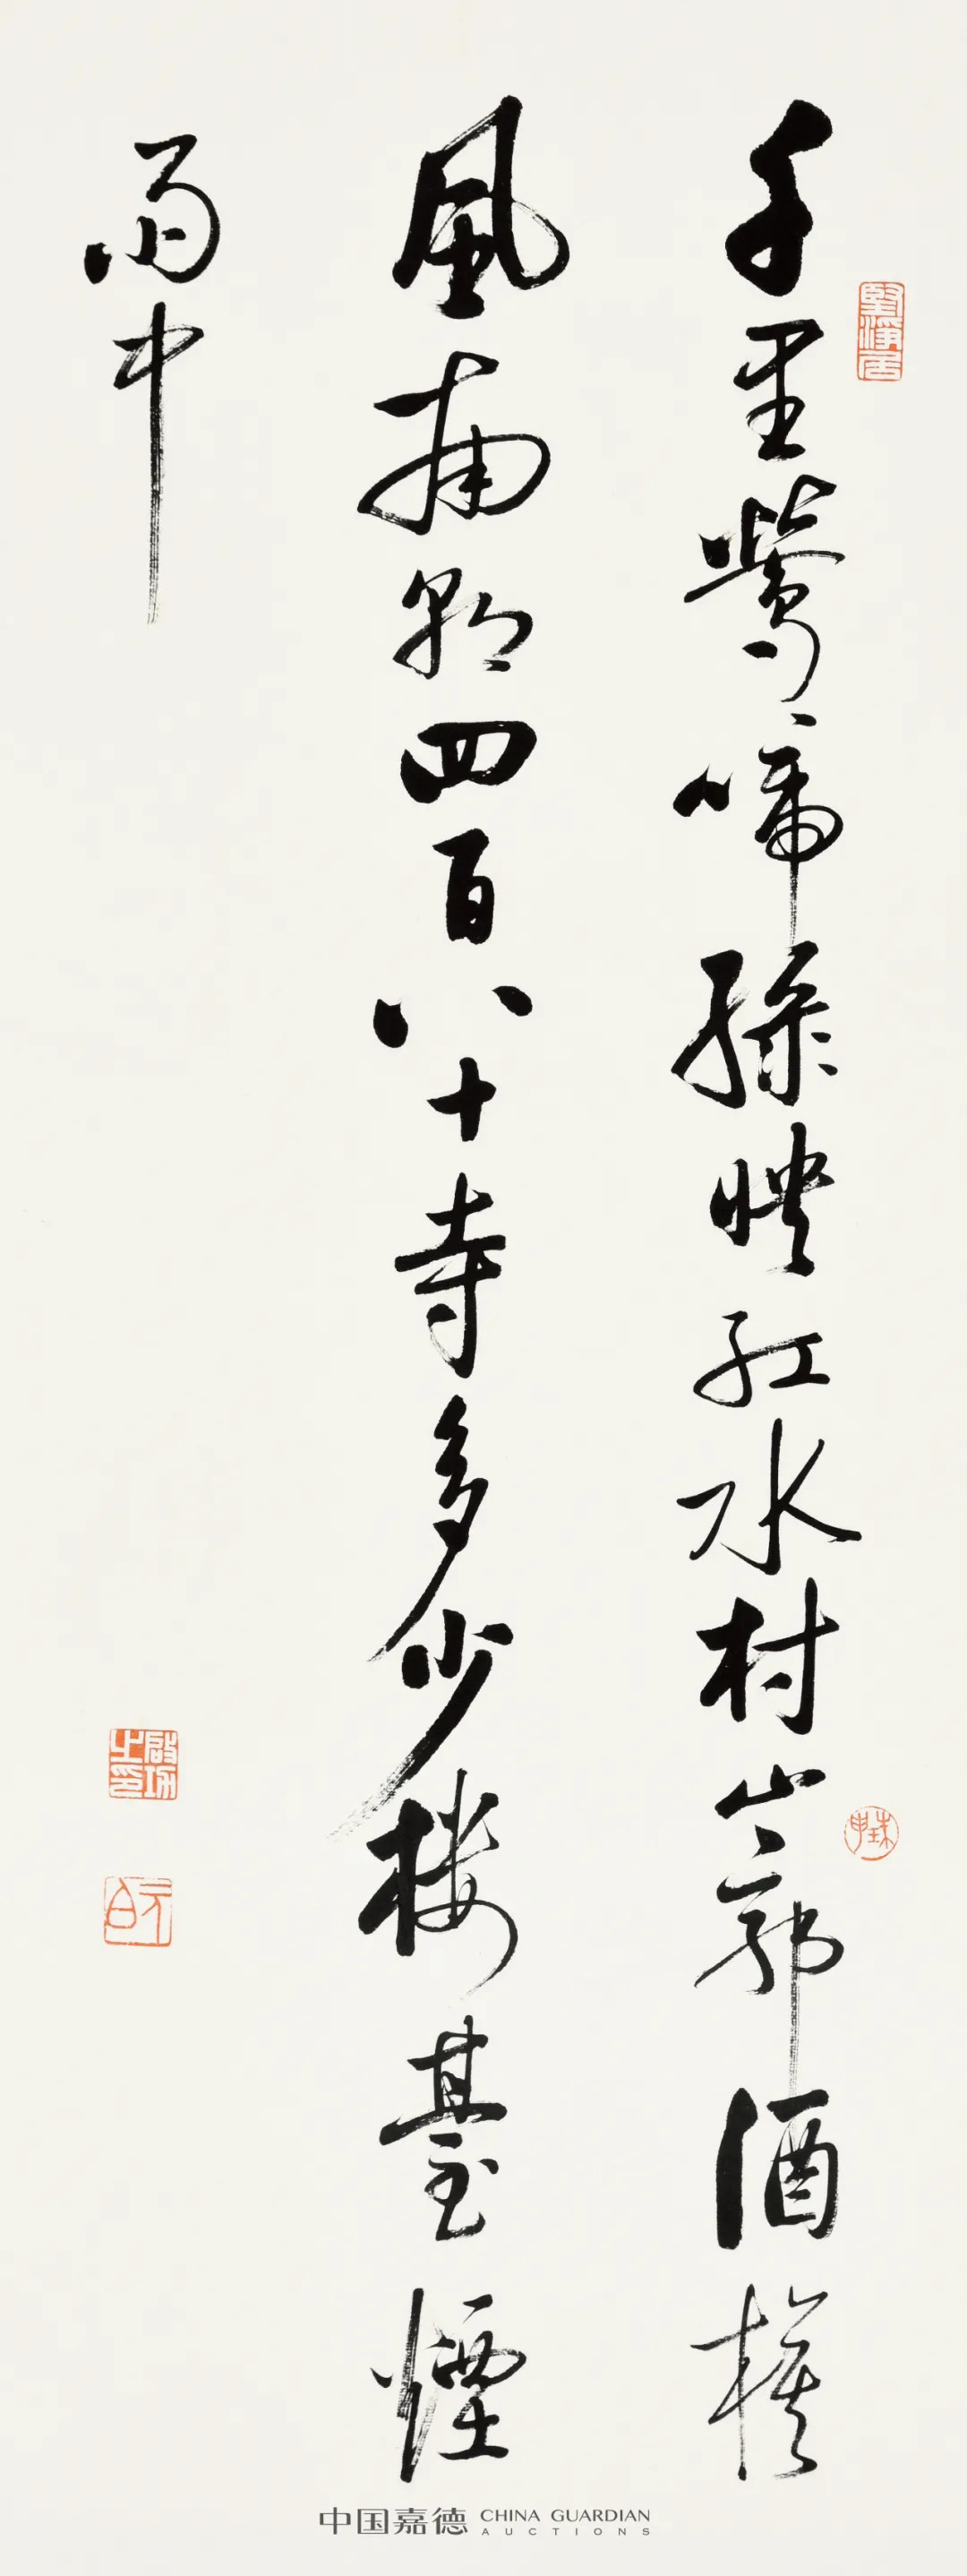 千里鶯啼綠映紅水村山郭酒旗
風南朝四百八十寺多少樓臺煙
雨中
堅淨居
啟功之印
元白
珠申
中国嘉德 CHINA GUARDIAN
AUCTIONS